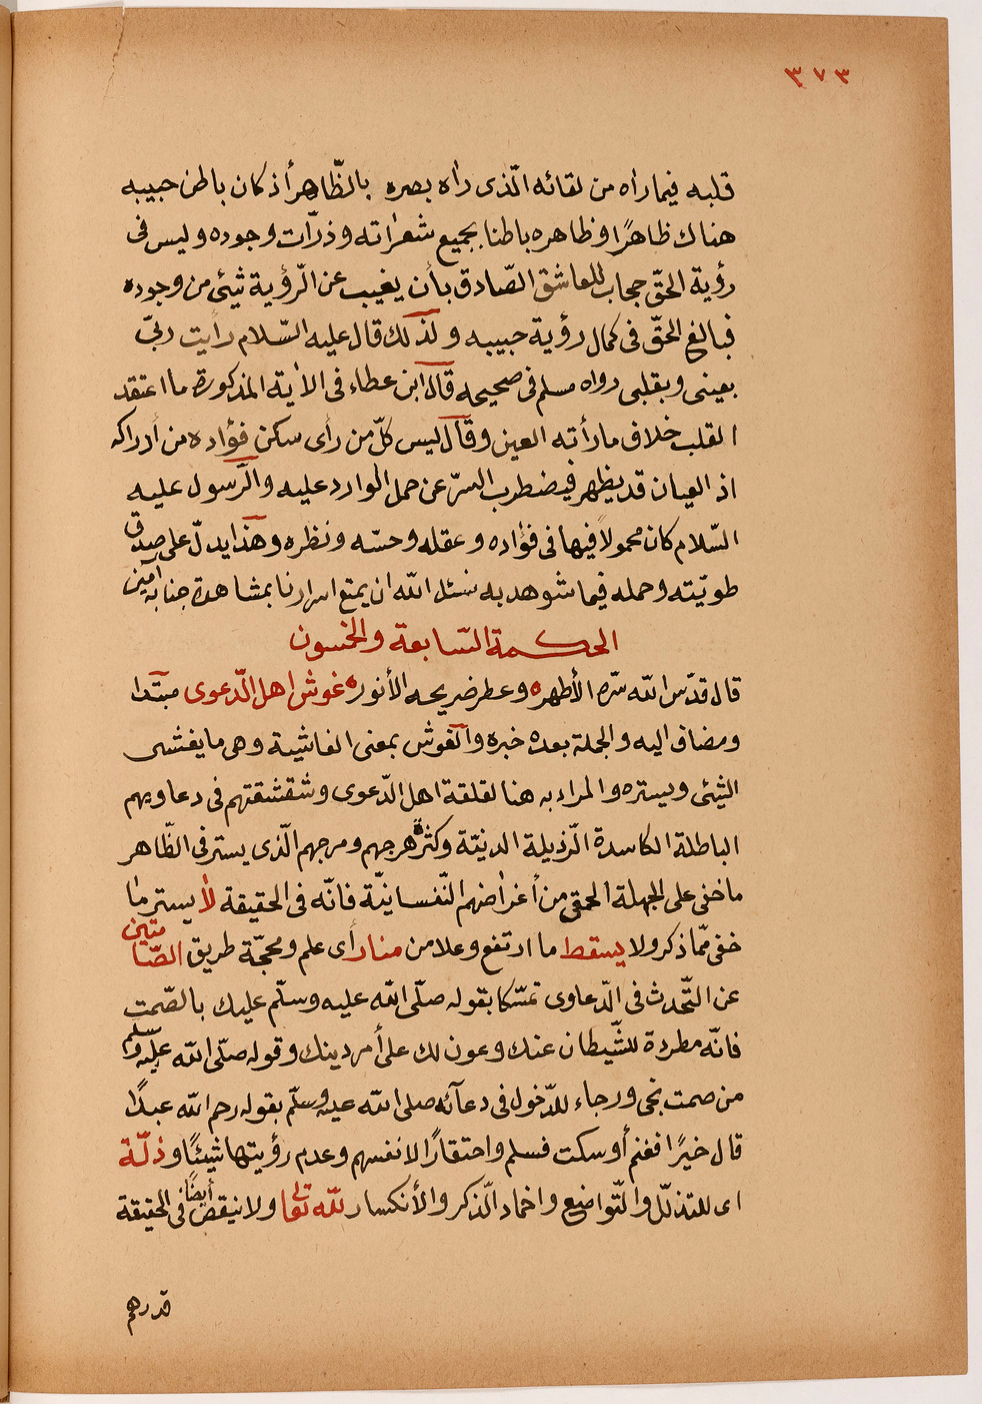 ٣٧٣
قلبه فيما رأه من لقائه الّذى رأه بصره بالظّاهر أذ كان باطن حبيبه
هناك ظاهرًا وظاهره باطنا بجميع شعراته وذرّات وجوده وليس فى
رؤية الحقّ حجاب للعاشق الصّادق بأن يغيب عن الّرؤية شيئ من وجوده
فبالغ الحقّ فى كمال رؤية حبيبه ولذلك قال عليه السّلام رأيت ربىّ
بعينى وبقلبى رواه مسلم فى صحيحه قال ابن عطاء فى الأية المذكورة ما اعتقد
القلب خلاف ما رأته العين وقال ليس كلّ من رأى سكن فؤاده من أدراكه
اذ العيان قد يظهر فيضطرب السرّ عن حمل الوارد عليه والّرسول عليه
السّلام كان محمولاً فيها فى فؤاده وعقله وحسّه ونظره وهذا يدلّ على صدق
طويّته وحمله فيما شوهد به نسئل الله ان يمتع اسرارنا بمشاهدة جنابه آمين
الحكمة السّابعة والخمسون
قال قدّس الله سّره الأطهره وعطر ضريحه الأنوره غوش اهل الّدعوى مبتدا
ومضاف اليه والجملة بعده خبره والغوش بمعنى الغاشية وهى ما يغشى
الشيئ ويستره والمراد به هنا لقلقة اهل الّدعوى وشقشقتهم فى دعاويهم
الباطلة الكاسدة الّرذيلة الدنيّة وكثرة هرجهم ومرجهم الّذى يستر فى الظّاهر
ما خفى على الجهلة الحمقى من أغراضهم النّفسانيّة فانّه فى الحقيقة لأ يستر ما
خفى ممّا ذكر ولا يسقط ما ارتفع وعلا من منار أى علم ومحجّة طريق الصّامتين
عن التّحدث فى الدّعاوى تمسّكا بقوله صلّى الله عليه وسلّم عليك بالصّمت
فانّه مطردة للشّيطان عنك وعون لك على أمر دينك وقوله صلّى الله عليه وسلم
من صمت نجى ورجاء للدّخول فى دعآئه صلى الله عليه وسلّم بقوله رحم الله عبدًا
قال خيرًا فغنم أو سكت فسلم واحتقارًا لانفسهم وعدم رؤيتها شيئًا وذلّة
اى للتذلّل والتّواضع واخماد الّذكر والأنكسار للّه تعالى ولا ينقص أيضًا فى الحقيقة
قدرهم